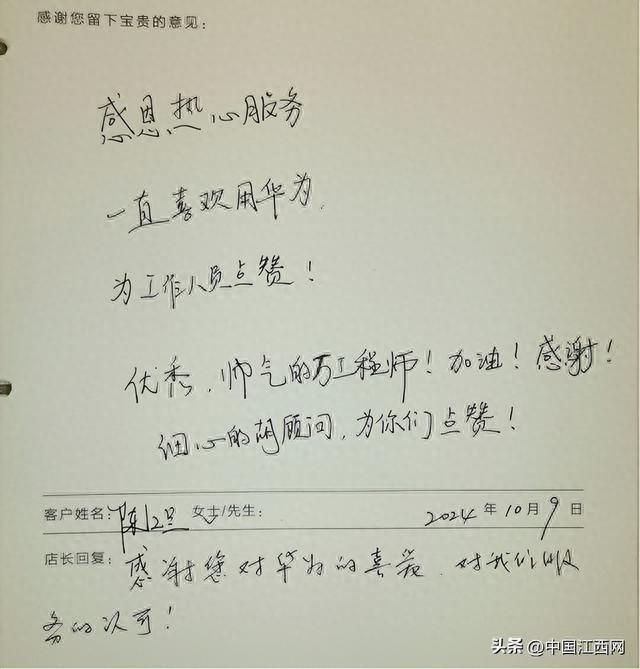 感谢您留下宝贵的意见：
感恩热心服务
一直喜欢用华为，
为工作人员点赞！
优秀，帅气的万工程师！加油！感谢！
细心的胡顾问，为你们点赞！
客户姓名：陈 女士/先生： 2024 年 10 月 9 日
店长回复：感谢您对华为的喜爱，对我们服
务的认可！
头条 @中国江西网